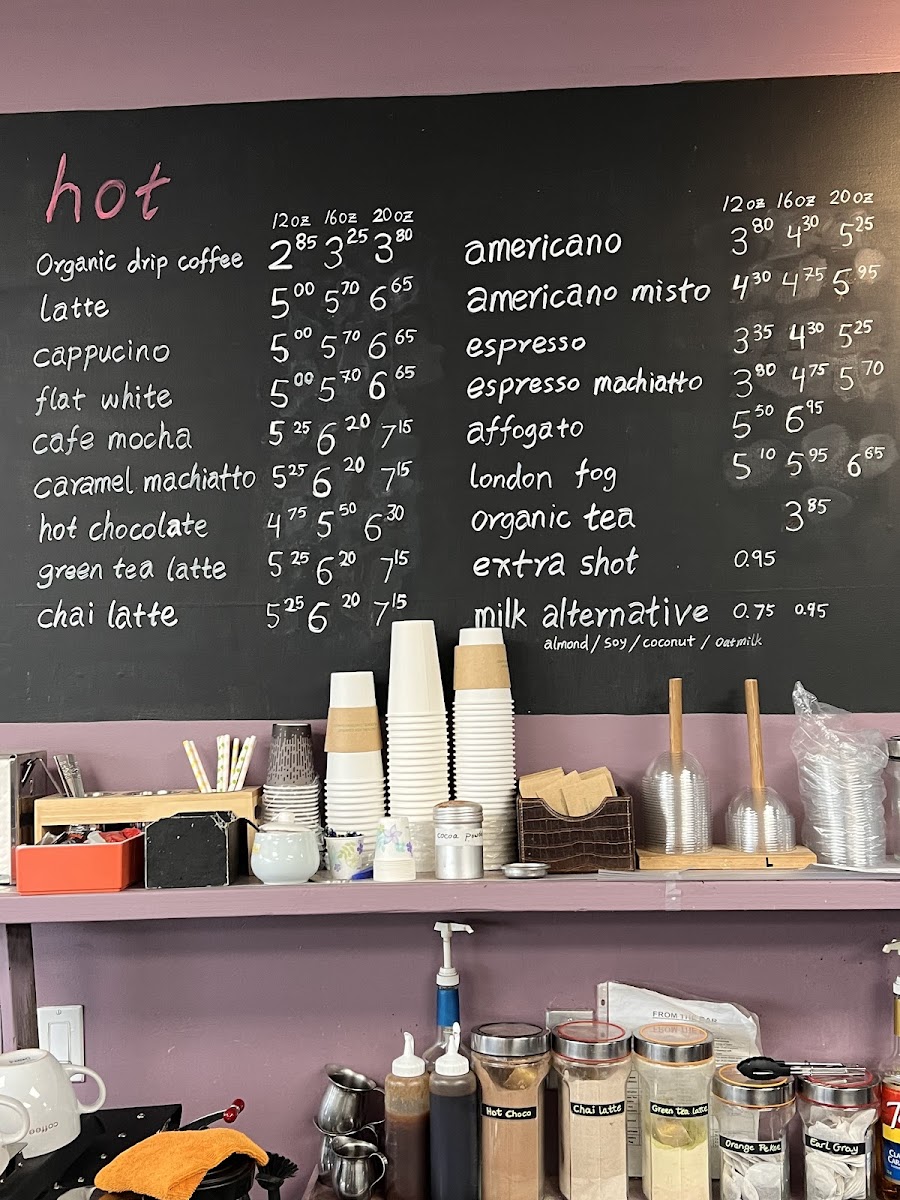 hot
12oz 16oz 20oz
Organic drip coffee 2.85 3.25 3.80
latte 5.00 5.70 6.65
cappucino 5.00 5.70 6.65
flat white 5.00 5.70 6.65
cafe mocha 5.25 6.20 7.15
caramel machiatto 5.25 6.20 7.15
hot chocolate 4.75 5.50 6.30
green tea latte 5.25 6.20 7.15
chai latte 5.25 6.20 7.15
12oz 16oz 20oz
americano 3.80 4.30 5.25
americano misto 4.30 4.75 5.95
espresso 3.35 4.30 5.25
espresso machiatto 3.80 4.75 5.70
affogato 5.50 6.95
london fog 5.10 5.95 6.65
organic tea 3.85
extra shot 0.95
milk alternative 0.75 0.95
almond / soy / coconut / oatmilk
cocoa
L
FROM THE BAR
Hot Choco
Chai latte
Green Tea latte
Orange Pekoe
Earl Gray
coffee